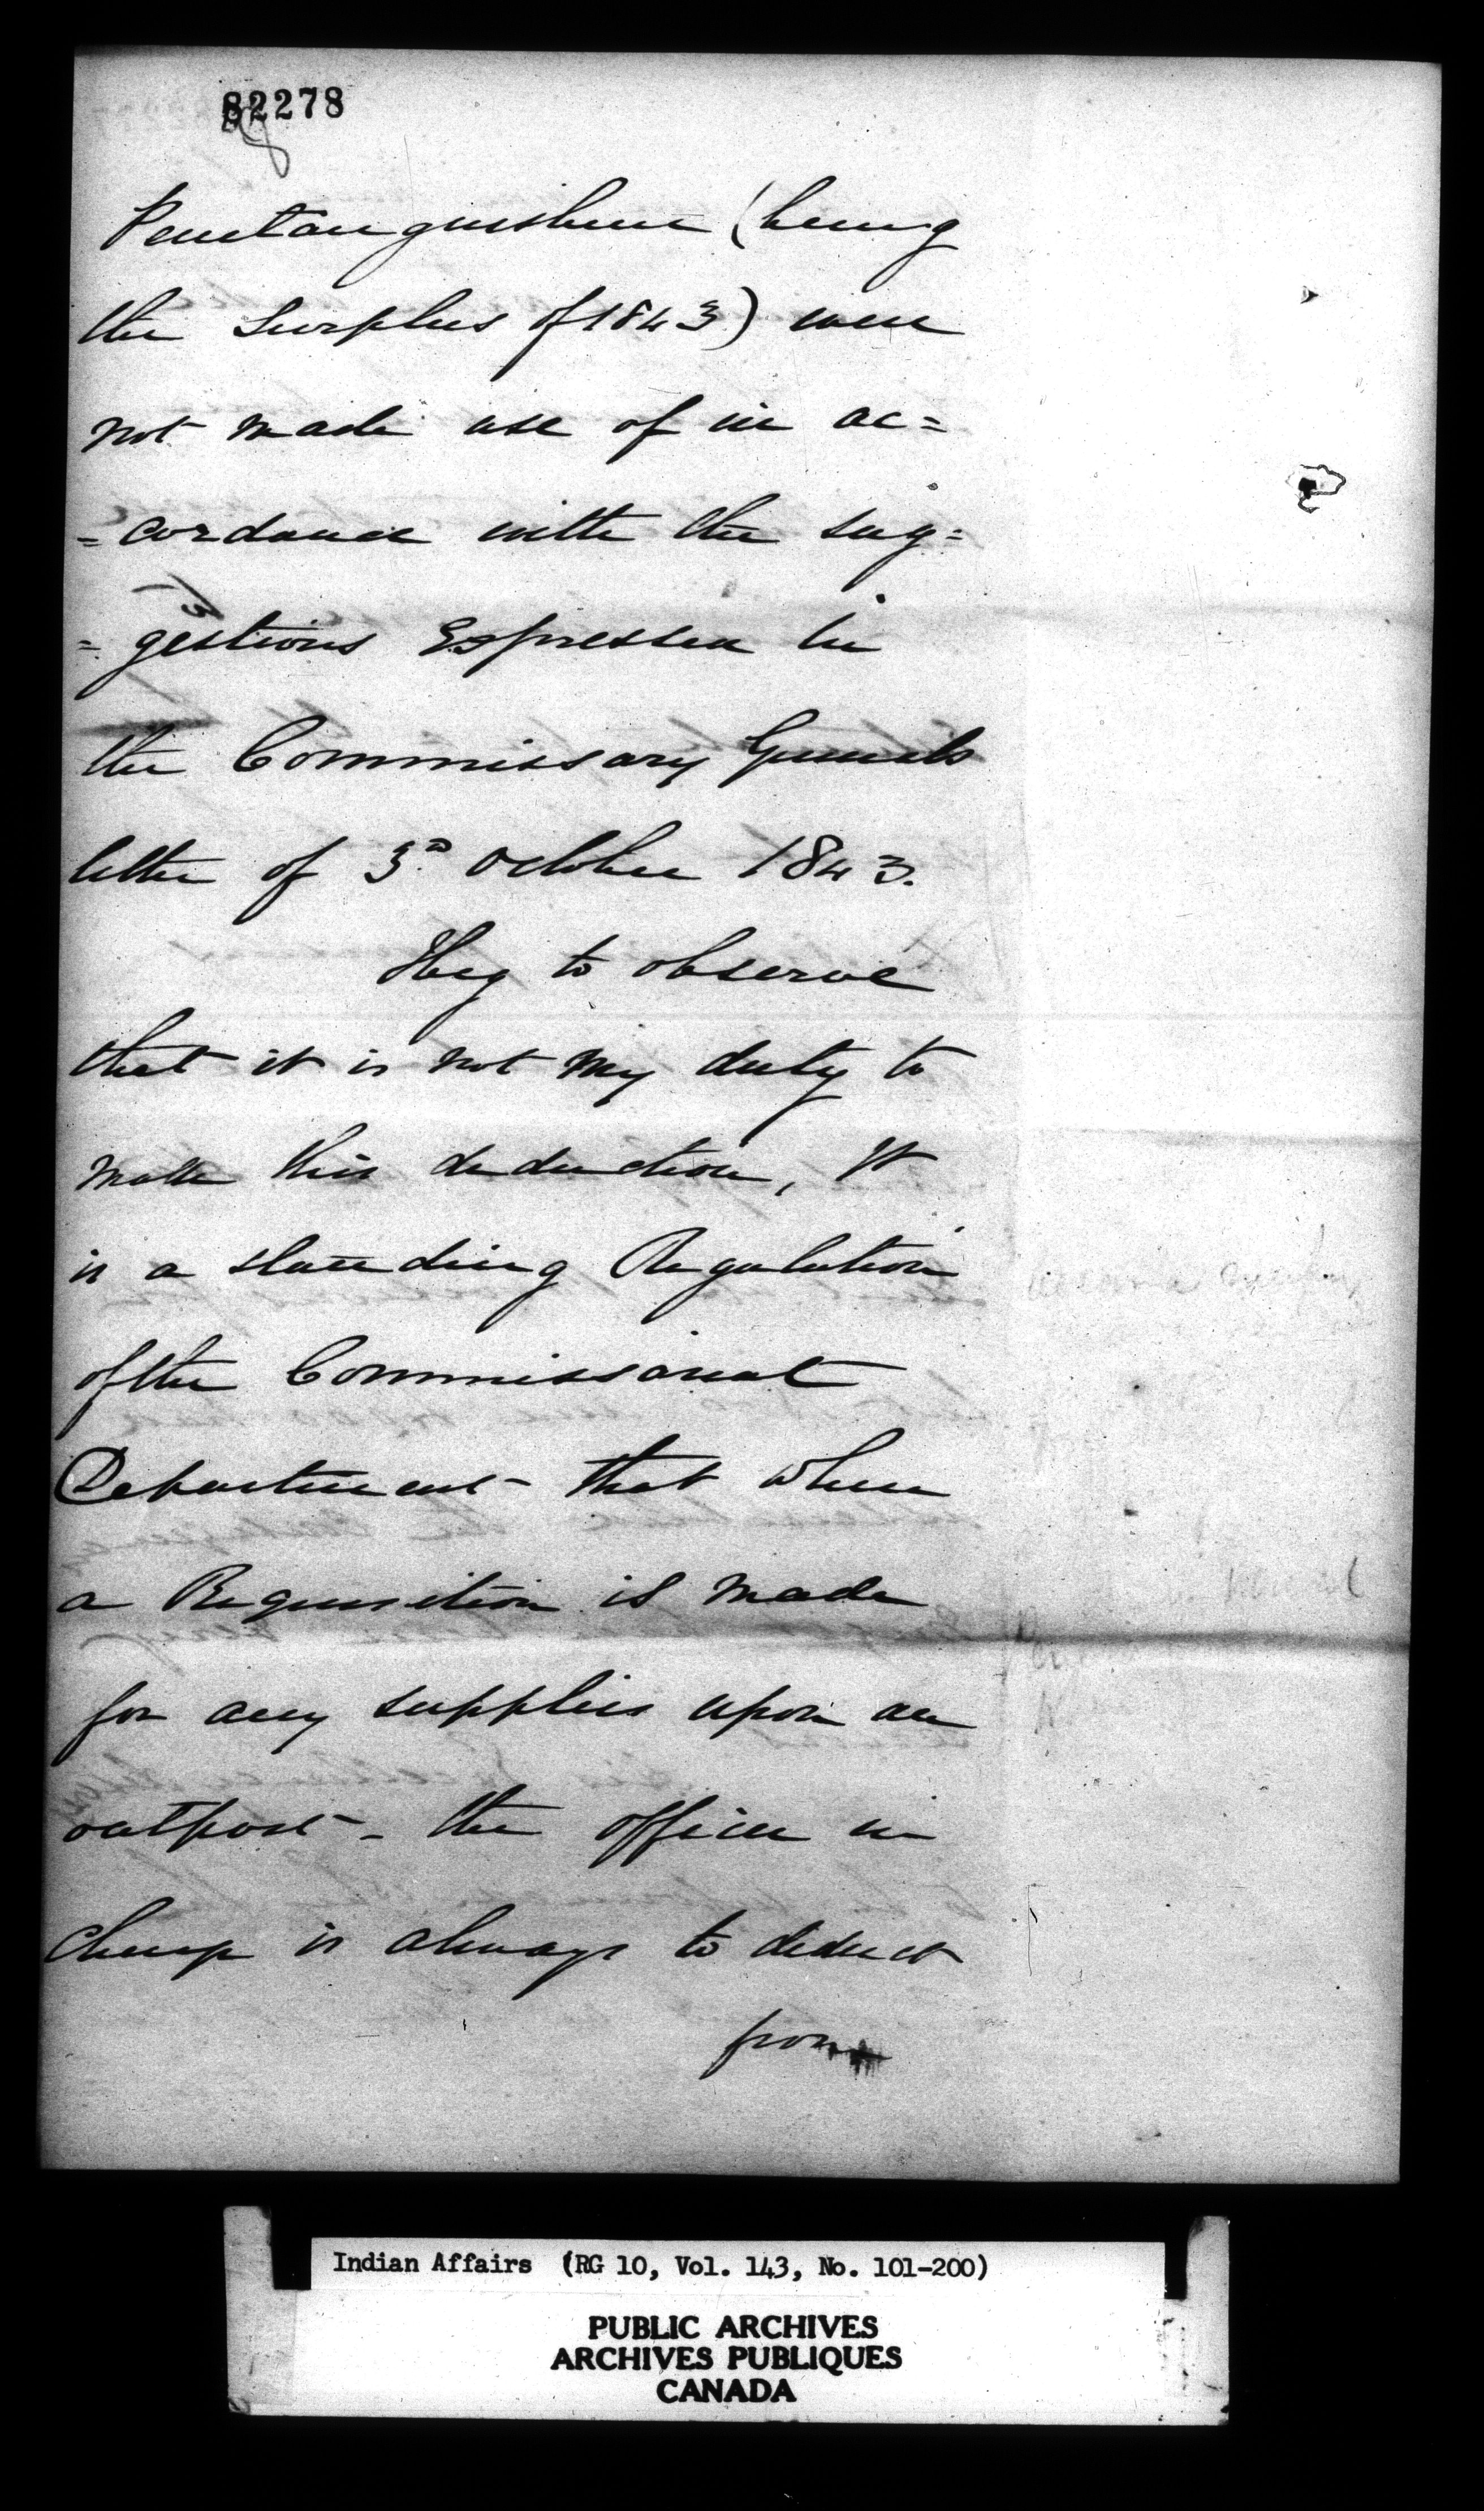 82278
Penetanguishene (being
the Surplus of 1843) were
not made use of in ac=
=cordance with the sug=
=gestions Expressed in
the Commissary Generals
letter of 3d October 1843.
I beg to observe
that it is not my duty to
make this deduction, It
is a standing Regulation
of the Commissariat
Department that when
a Requisition is made
for any supplies upon an
outpost - the officer in
charge is always to deduct
from
Indian Affairs (RG 10, Vol. 143, No. 101-200)
PUBLIC ARCHIVES
ARCHIVES PUBLIQUES
CANADA